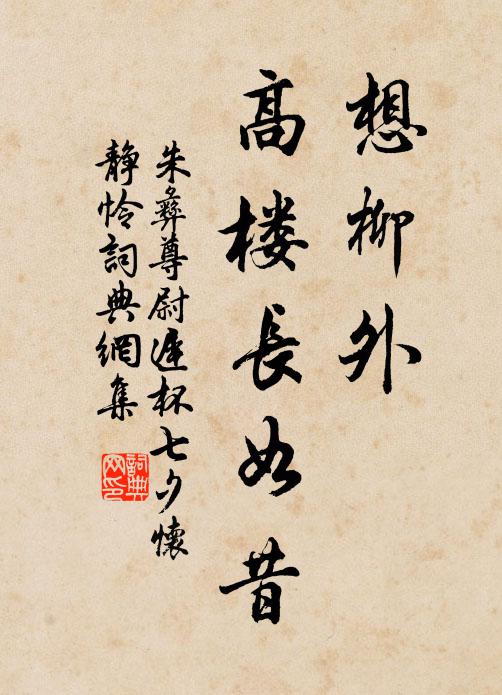 想柳外
高楼長如昔
朱彝尊尉遲杯七夕懷
静怜詞典網集
詞典
网印